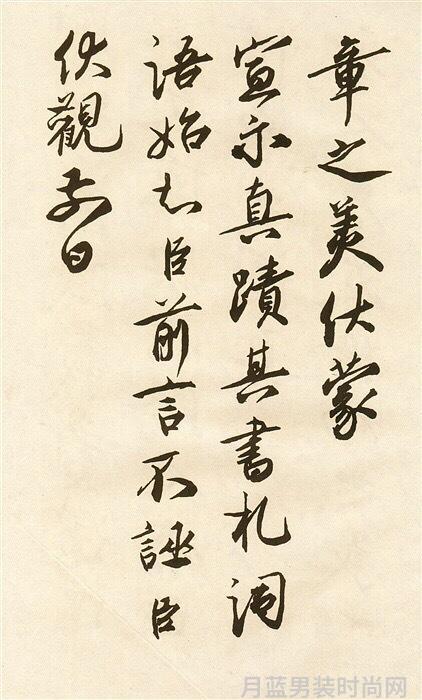 章之美伏蒙
宣示真蹟其書札詞
語始知臣前言不誣臣
伏觀日
月蓝男装时尚网